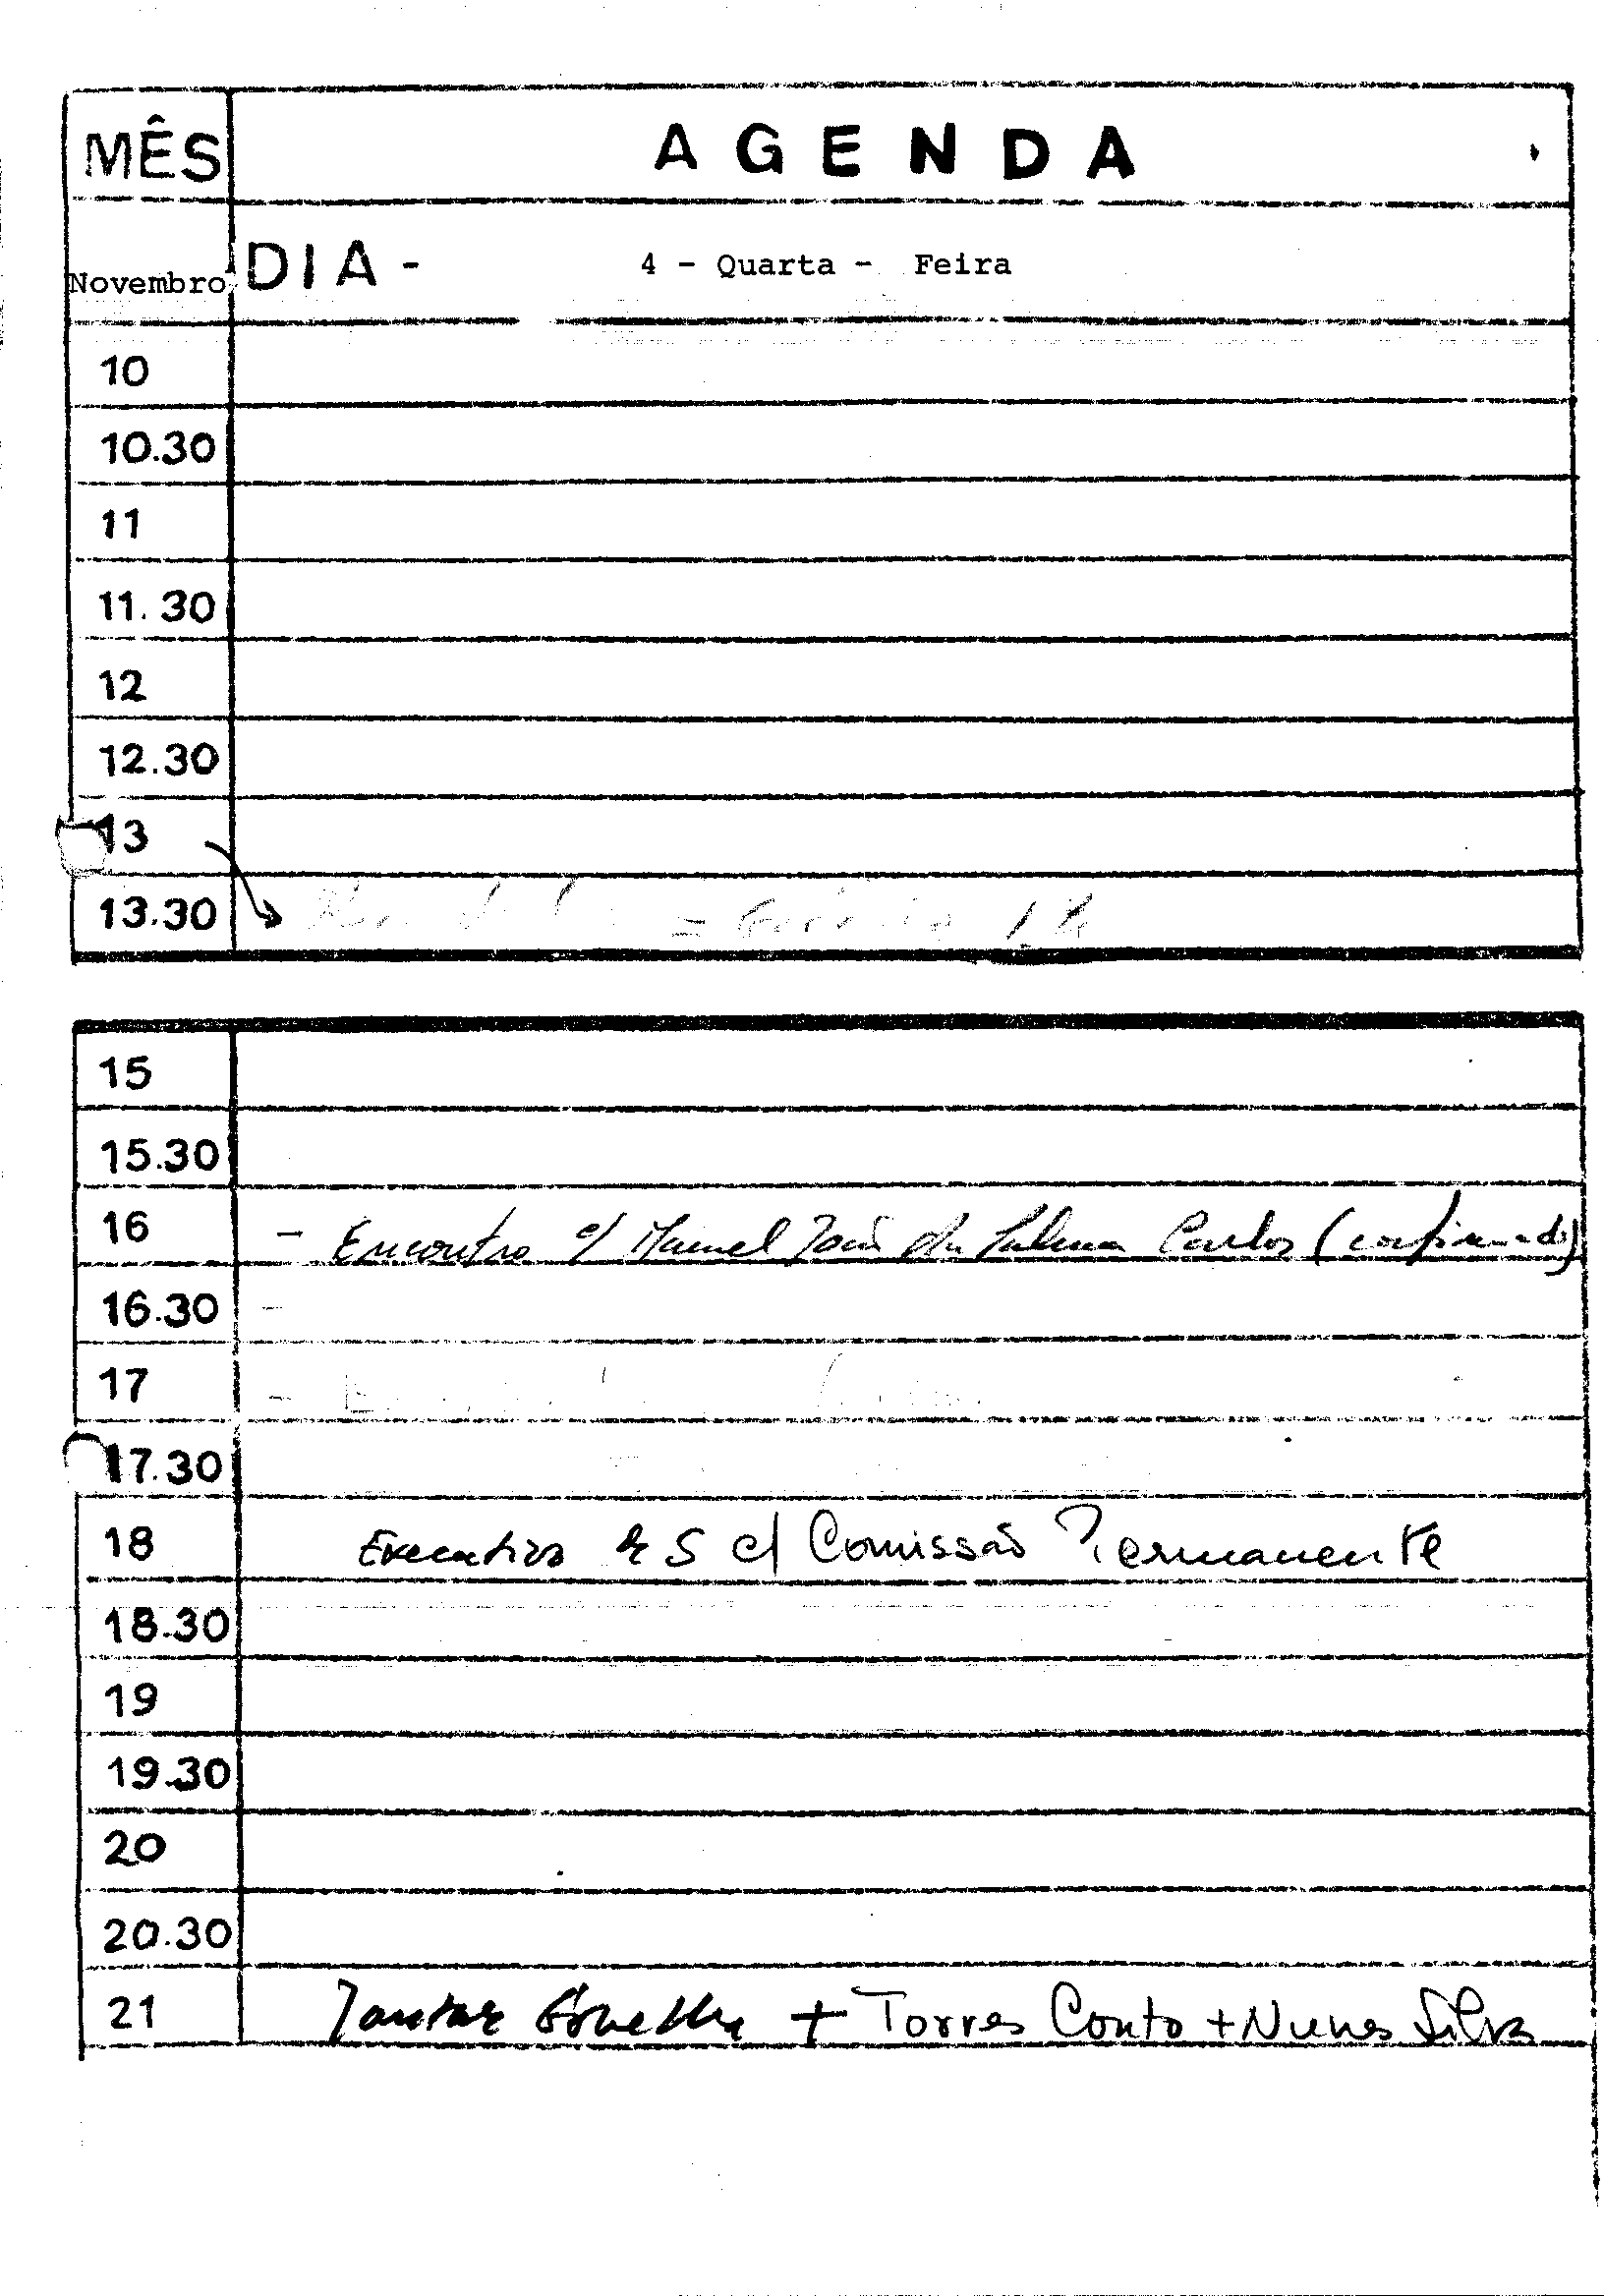 MÊS AGENDA
Novembro DIA - 4 - Quarta - Feira
10
10.30
11
11.30
12
12.30
13
13.30
15
15.30
16 - Encontro c/ Manuel João da Palma Carlos (confirmado)
16.30 -
17 -
17.30
18 Executivo c/ Comissão Permanente
18.30
19
19.30
20
20.30
21 Jantar + Torres Couto + Nunes Silva